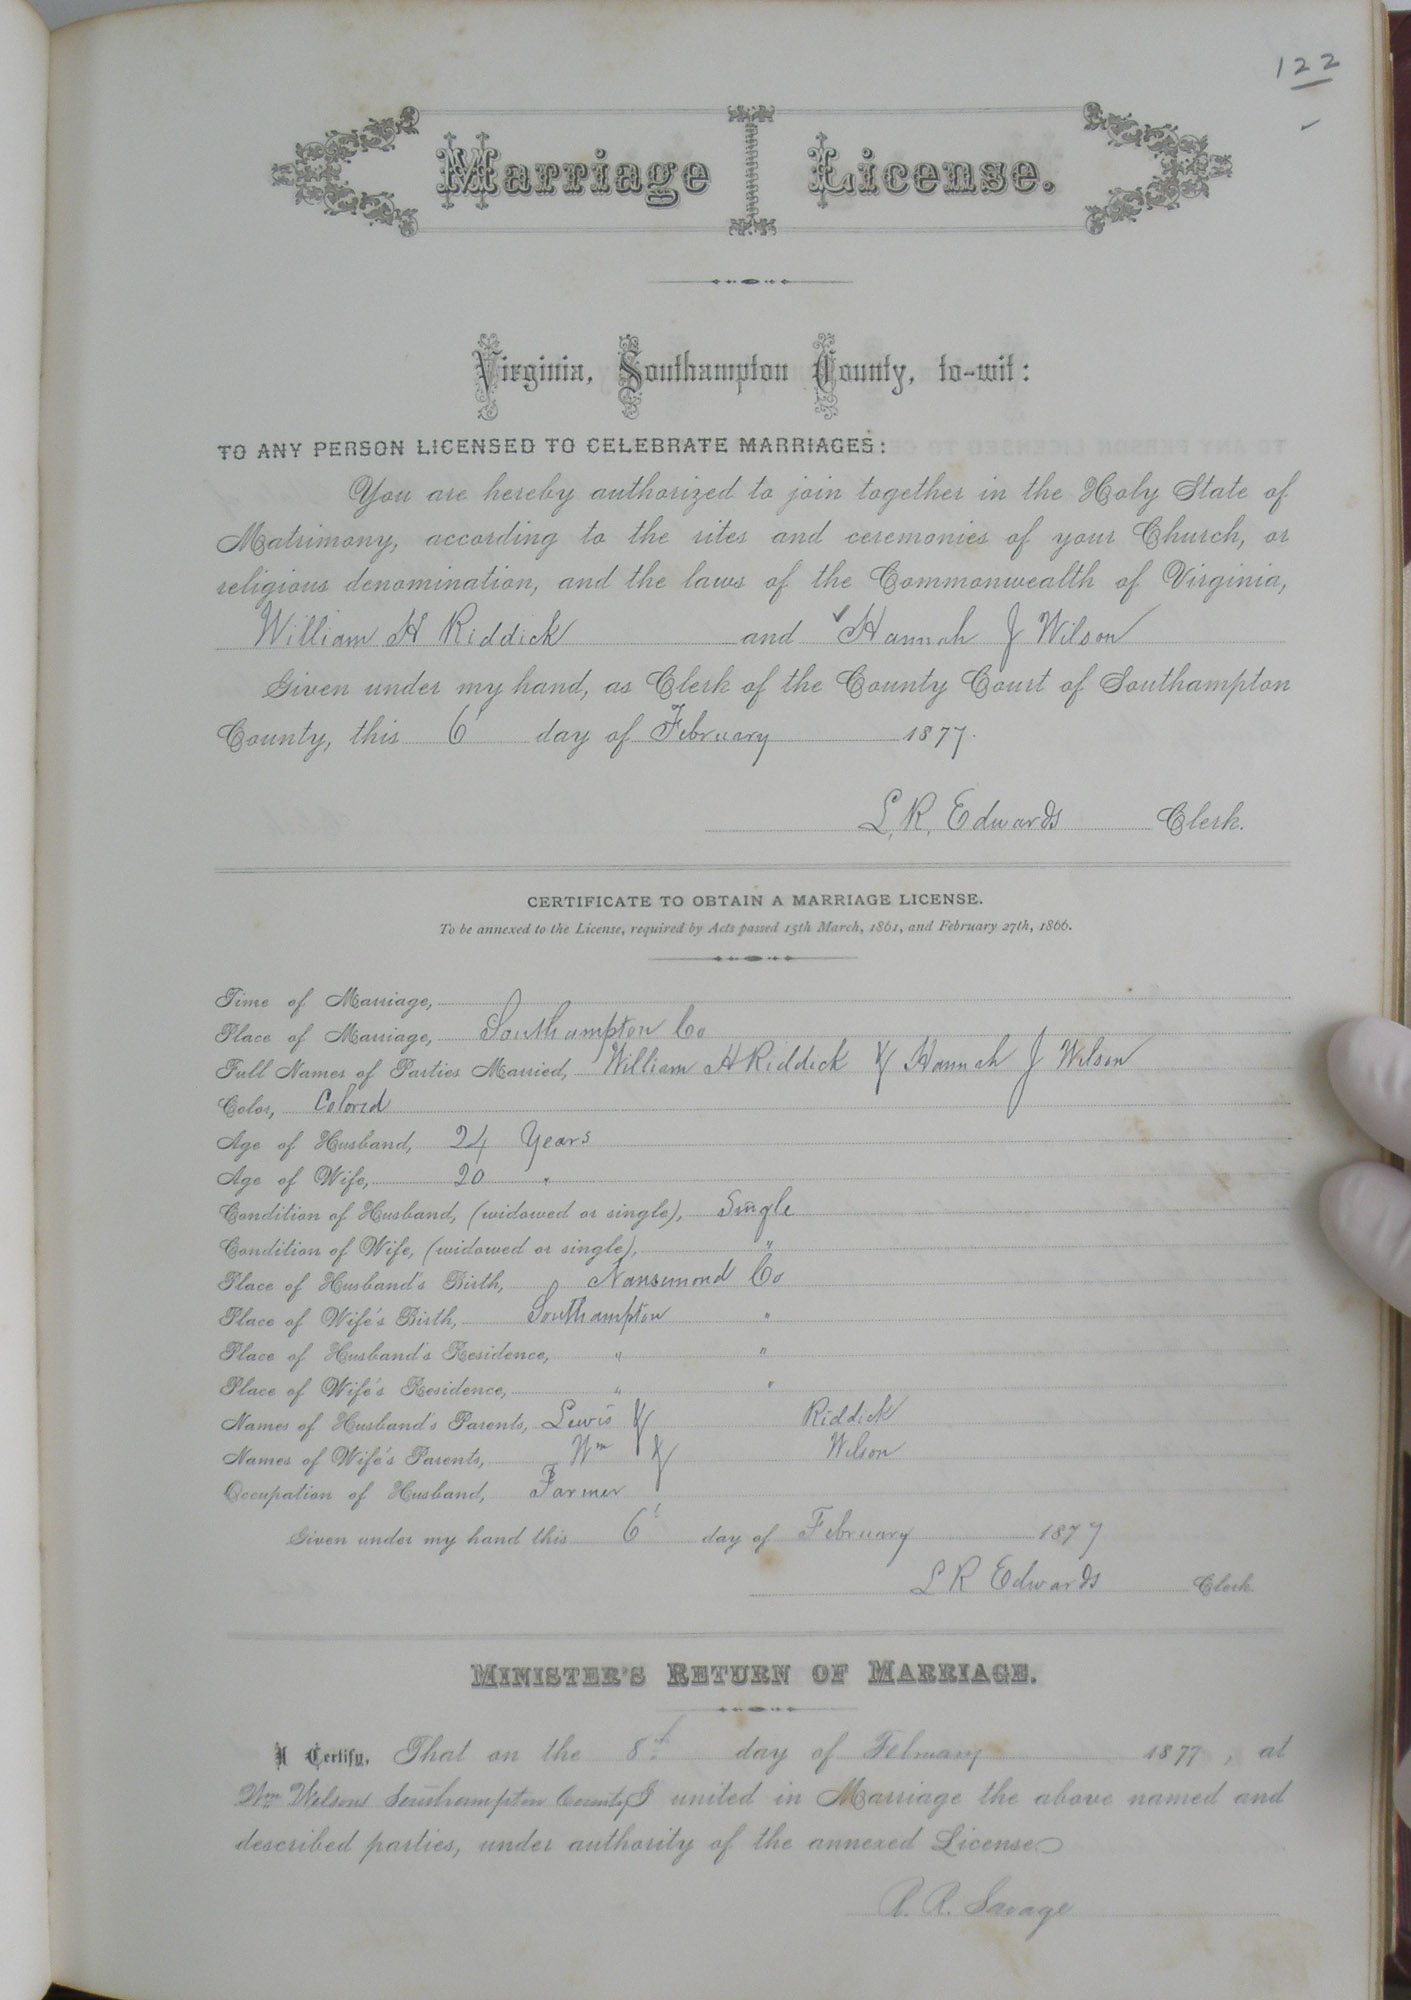 122
Marriage License.
Virginia, Southampton County, to-wit:
TO ANY PERSON LICENSED TO CELEBRATE MARRIAGES:
You are hereby authorized to join together in the Holy State of
Matrimony, according to the rites and ceremonies of your Church, or
religious denomination, and the laws of the Commonwealth of Virginia,
William H Riddick and ✓ Hannah J Wilson
Given under my hand, as Clerk of the County Court of Southampton
County, this 6' day of February 1877.
L. R. Edwards Clerk.
CERTIFICATE TO OBTAIN A MARRIAGE LICENSE.
To be annexed to the License, required by Acts passed 15th March, 1861, and February 27th, 1866.
Time of Marriage,
Place of Marriage, Southampton Co
Full Names of Parties Married, William H Riddick & Hannah J Wilson
Color, Colored
Age of Husband, 24 Years
Age of Wife, 20 "
Condition of Husband, (widowed or single), Single
Condition of Wife, (widowed or single), "
Place of Husband's Birth, Nansemond Co
Place of Wife's Birth, Southampton "
Place of Husband's Residence, " "
Place of Wife's Residence, " "
Names of Husband's Parents, Lewis & Riddick
Names of Wife's Parents, Wm & Wilson
Occupation of Husband, Farmer
Given under my hand this 6' day of February 1877
L R Edwards Clerk
MINISTER'S RETURN OF MARRIAGE.
I Certify, That on the 8th day of February 1877, at
Wm Wilsons Southampton County I united in Marriage the above named and
described parties, under authority of the annexed License
R. R. Savage